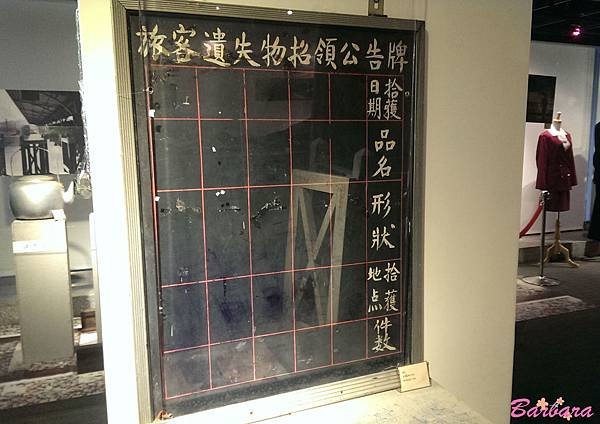 旅客遺失物招領公告牌
拾獲日期
品名
形狀
拾獲地点
件數
Barbara